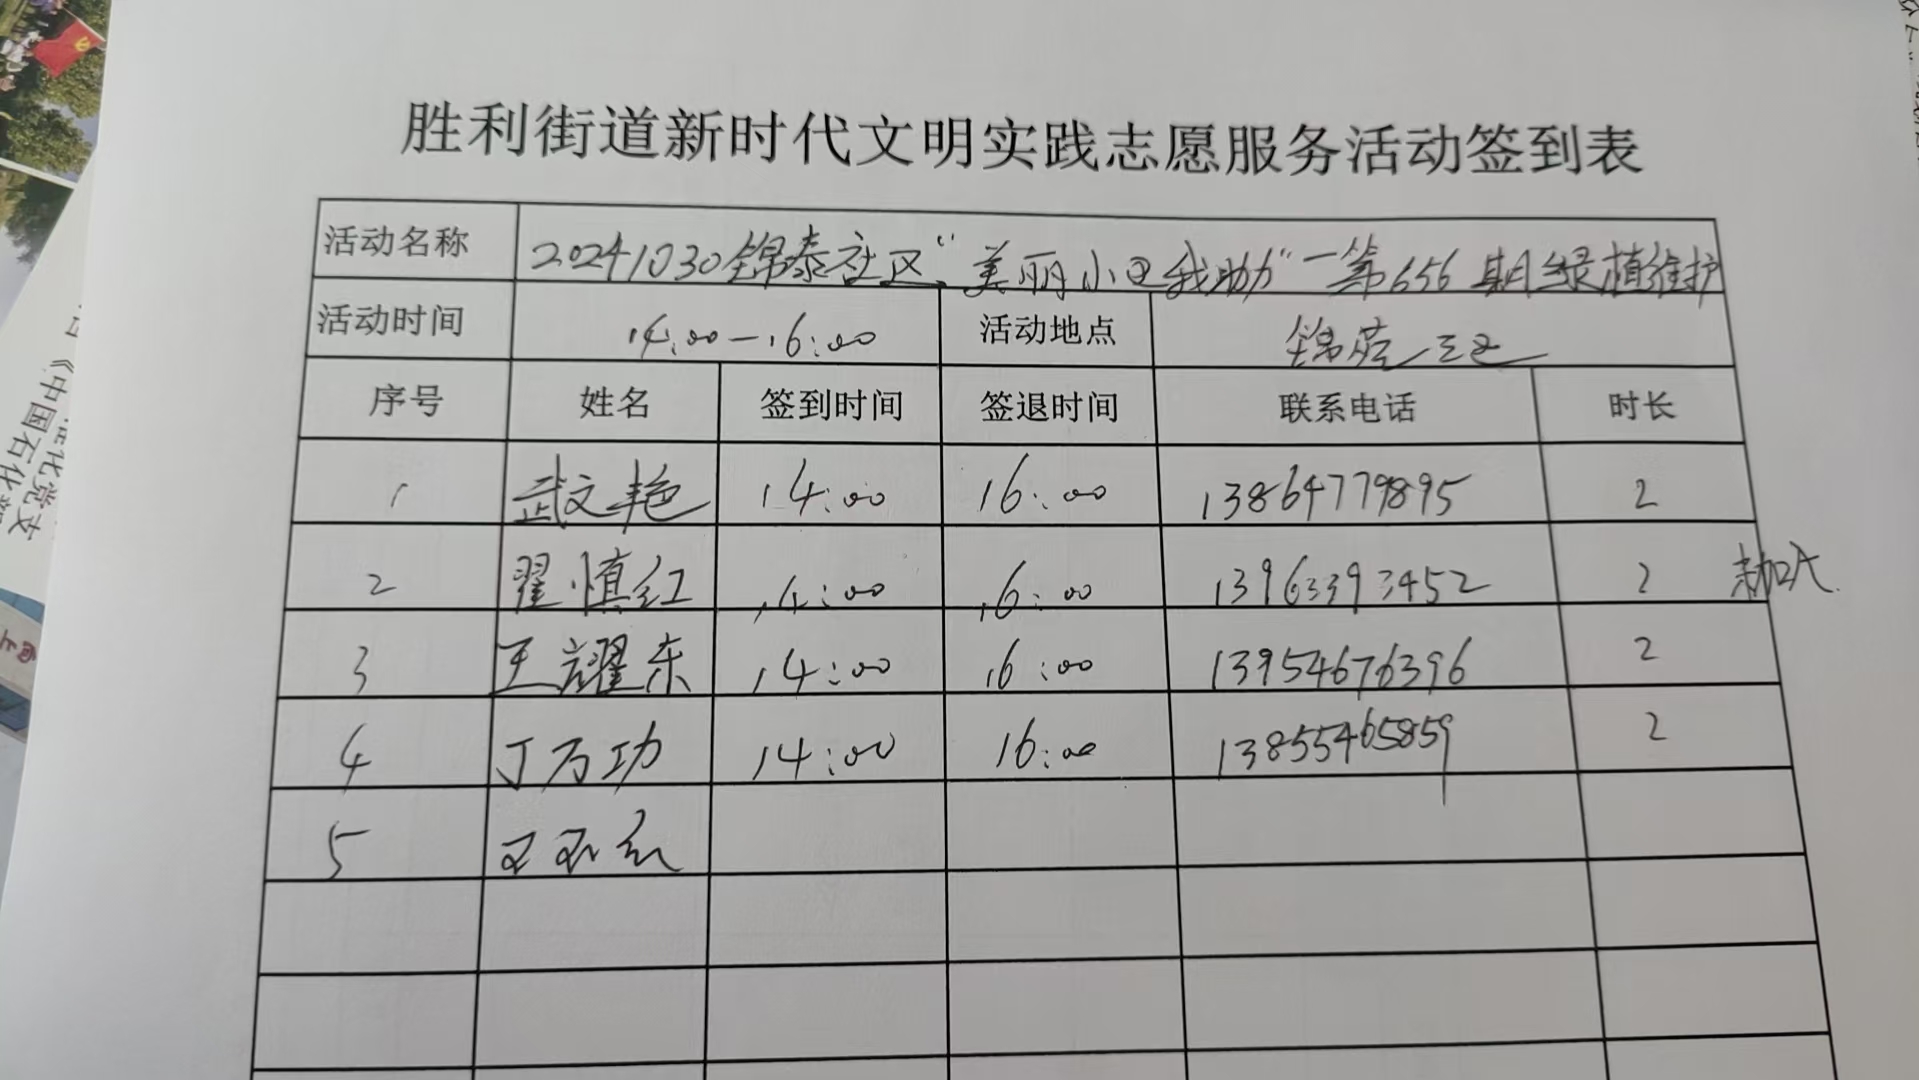 胜利街道新时代文明实践志愿服务活动签到表
活动名称 20241030锦泰社区“美丽小区我助力”—第656期绿植维护
活动时间 14:00—16:00 活动地点 锦苑三区
序号 姓名 签到时间 签退时间 联系电话 时长
1 武文艳 14:00 16:00 13864779895 2
2 翟慎红 14:00 16:00 13963393452 2 未加入
3 王耀东 14:00 16:00 13954676396 2
4 丁万功 14:00 16:00 13855465859 2
5
《中国石化